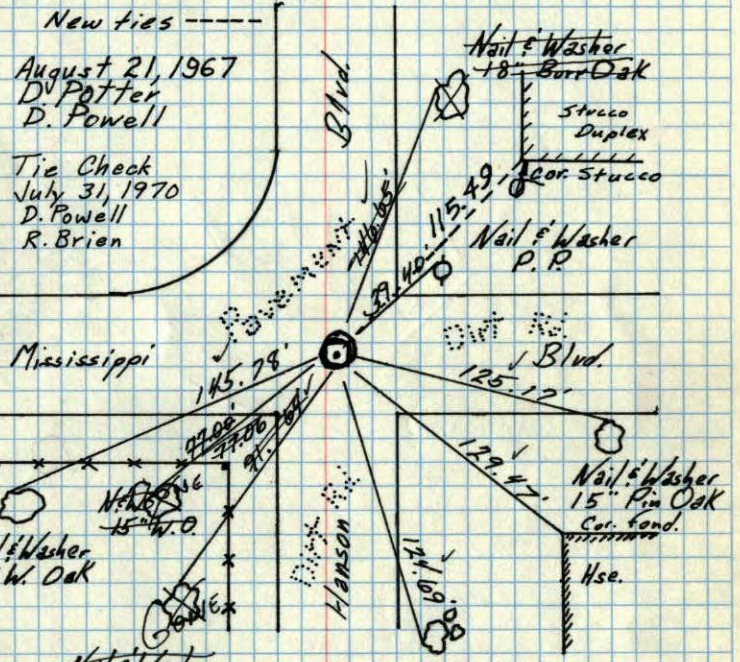 New ties -----
August 21, 1967
D. Potter
D. Powell
Tie Check
July 31, 1970
D. Powell
R. Brien
Blvd.
Nail & Washer
18" Burr Oak
Stucco
Duplex
Cor. Stucco
146.65'
115.49
39.40'
Nail & Washer
P.P.
Pavement
Dirt Rd.
Mississippi
Blvd.
145.78'
125.17'
77.00'
77.06
91.64'
129.47'
124.69'
Nail & Washer
15" Pin Oak
Cor. fond.
Hse.
GONE
15" W.O.
& Washer
W. Oak
GONE
Dirt Rd.
Hanson